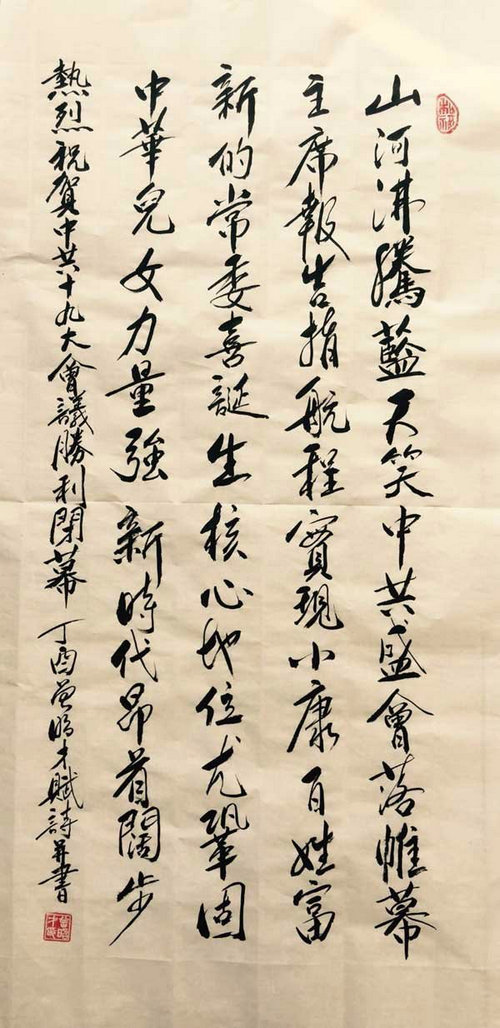 山河沸騰藍天笑中共盛會落帷幕
主席報告指航程實現小康百姓富
新的常委喜誕生核心地位尤鞏固
中華兒女力量強新時代昂首闊步
熱烈祝賀中共十九大會議勝利閉幕 丁酉曾昭才賦詩并書